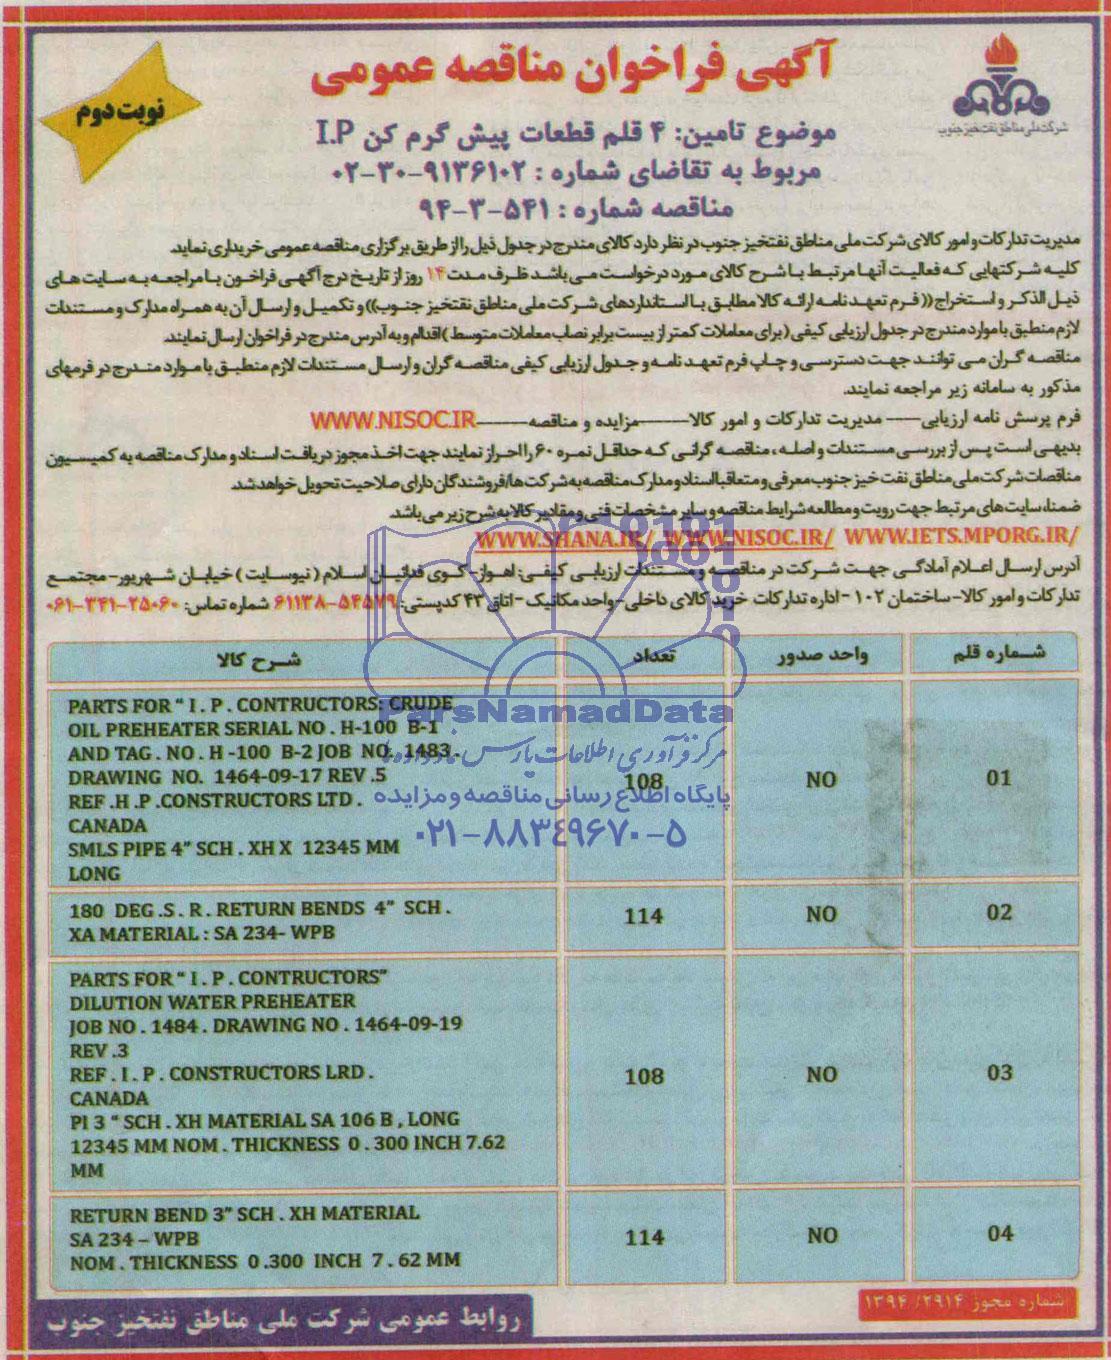 آگهی فراخوان مناقصه عمومی
نوبت دوم
شرکت ملی مناطق نفتخیز جنوب
موضوع تامین: ۴ قلم قطعات پیش گرم کن I.P
مربوط به تقاضای شماره : ۹۱۳۶۱۰۲-۳۰-۰۲
مناقصه شماره : ۵۴۱-۳-۹۴
مدیریت تدارکات و امور کالای شرکت ملی مناطق نفتخیز جنوب در نظر دارد کالای مندرج در جدول ذیل را از طریق برگزاری مناقصه عمومی خریداری نماید.
کلیه شرکتهایی که فعالیت آنها مرتبط با شرح کالای مورد درخواست می باشد ظرف مدت ۱۴ روز از تاریخ درج آگهی فراخون با مراجعه به سایت های
ذیل الذکر و استخراج(( فرم تعهد نامه ارائه کالا مطابق با استانداردهای شرکت ملی مناطق نفتخیز جنوب)) و تکمیل و ارسال آن به همراه مدارک و مستندات
لازم منطبق با موارد مندرج در جدول ارزیابی کیفی ( برای معاملات کمتر از بیست برابر نصاب معاملات متوسط ) اقدام و به آدرس مندرج در فراخوان ارسال نمایند.
مناقصه گران می توانند جهت دسترسی و چاپ فرم تعهد نامه و جدول ارزیابی کیفی مناقصه گران و ارسال مستندات لازم منطبق با موارد مندرج در فرمهای
مذکور به سامانه زیر مراجعه نمایند.
فرم پرسش نامه ارزیابی---- مدیریت تدارکات و امور کالا------مزایده و مناقصه------WWW.NISOC.IR
بدیهی است پس از بررسی مستندات واصله، مناقصه گرانی که حداقل نمره ۶۰ را احراز نمایند جهت اخذ مجوز دریافت اسناد و مدارک مناقصه به کمیسیون
مناقصات شرکت ملی مناطق نفت خیز جنوب معرفی و متعاقبا اسناد و مدارک مناقصه به شرکت ها/فروشندگان دارای صلاحیت تحویل خواهد شد.
ضمنا، سایت های مرتبط جهت رویت و مطالعه شرایط مناقصه و سایر مشخصات فنی و مقادیر کالا به شرح زیر می باشد.
WWW.SHANA.IR/ WWW.NISOC.IR/ WWW.IETS.MPORG.IR/
آدرس ارسال اعلام آمادگی جهت شرکت در مناقصه و مستندات ارزیابی کیفی: اهواز- کوی فدائیان اسلام ( نیوسایت ) خیابان شهریور- مجتمع
تدارکات و امور کالا- ساختمان ۱۰۲ - اداره تدارکات خرید کالای داخلی- واحد مکانیک - اتاق ۴۳ کدپستی: ۵۴۵۷۹-۶۱۱۳۸ شماره تماس: ۲۵۰۶۰-۳۴۱-۰۶۱
شماره قلم واحد صدور تعداد شرح کالا
01 NO 108
PARTS FOR “ I . P . CONTRUCTORS: CRUDE
OIL PREHEATER SERIAL NO . H-100 B-1
AND TAG . NO . H -100 B-2 JOB NO. 1483 .
DRAWING NO. 1464-09-17 REV .5
REF .H .P .CONSTRUCTORS LTD .
CANADA
SMLS PIPE 4” SCH . XH X 12345 MM
LONG
02 NO 114
180 DEG .S . R . RETURN BENDS 4” SCH .
XA MATERIAL : SA 234- WPB
03 NO 108
PARTS FOR “ I . P . CONTRUCTORS”
DILUTION WATER PREHEATER
JOB NO . 1484 . DRAWING NO . 1464-09-19
REV .3
REF . I . P . CONSTRUCTORS LRD .
CANADA
PI 3 “ SCH . XH MATERIAL SA 106 B , LONG
12345 MM NOM . THICKNESS 0 . 300 INCH 7.62
MM
04 NO 114
RETURN BEND 3” SCH . XH MATERIAL
SA 234 – WPB
NOM . THICKNESS 0 .300 INCH 7 . 62 MM
ParsNamadData
مرکز فرآوری اطلاعات پارس نماد داده ها
پایگاه اطلاع رسانی مناقصه و مزایده
۰۲۱-۸۸۳۴۹۶۷۰-۵
شماره مجوز ۲۹۱۴/ ۱۳۹۴
روابط عمومی شرکت ملی مناطق نفتخیز جنوب